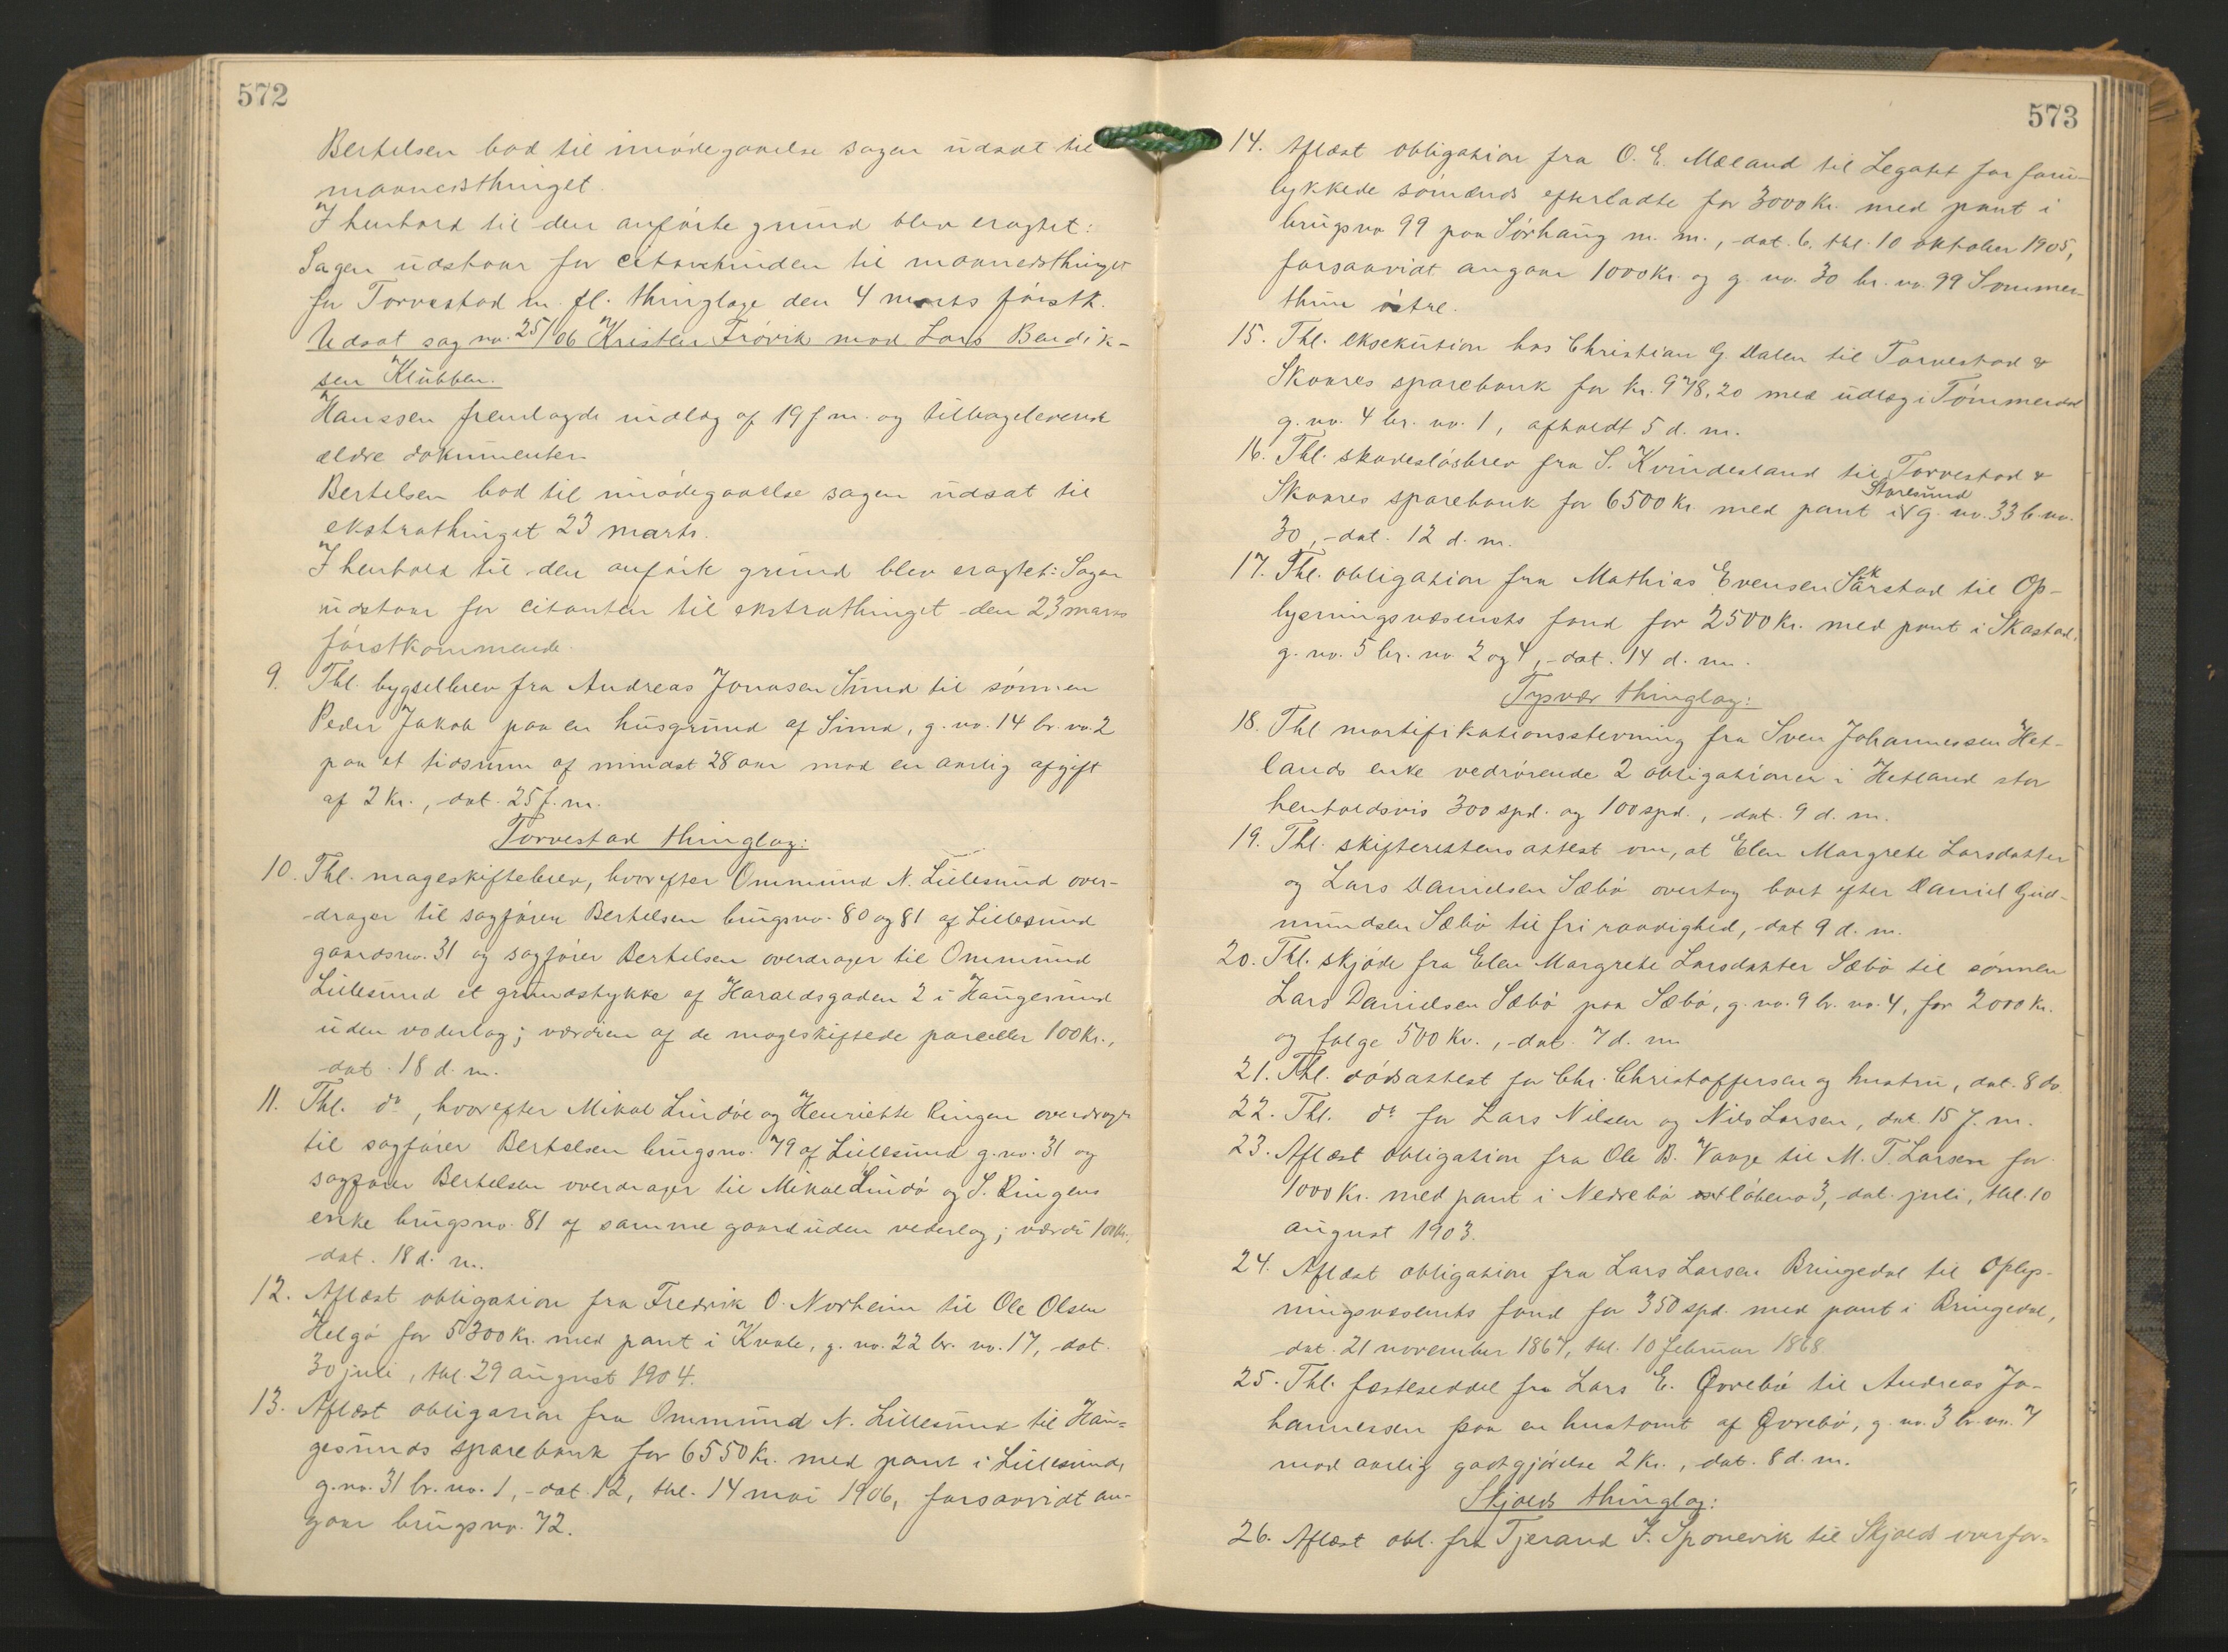 572
Bertelsen bad til imødegaaelse sagen udsat til
maanedsthinget.
I henhold til den anførte grund blev eragtet:
Sagen udstaar for citantinden til maanedsthinget
for Torvestad m. fl. thinglage den 4 marts førstk.
Udsat sag no. 25/06 Kristen Frøvik mod Lars Bendik-
sen Klubben.
Hanssen fremlagde indlæg af 19 f. m. og tilbageleverede
ældre dokumenter.
Bertelsen bad til imødegaaelse sagen udsat til
ekstrathinget 23 marts.
I henhold til den anførte grund blev eragtet: Sagen
udstaar for citanten til ekstrathinget den 23 marts
førstkommende.
9. Thl. bygselbrev fra Andreas Jonasen Sund til sønnen
Peder Jakob paa en husgrund af Sund, g. no. 14 br. no. 2
paa et tidsrum af mindst 28 aar mod en aarlig afgift
af 2 Kr., dat. 25 f. m.
Torvestad thinglag:
10. Thl. mageskiftebrev, hvorefter Ommund N. Lillesund over-
-drager til sagfører Bertelsen brugsno. 80 og 81 af Lillesund
gaardsno. 31 og sagfører Bertelsen overdrager til Ommund
Lillesund et grundstykke af Haraldsgaden 2 i Haugesund
uden vederlag; værdien af de mageskiftede parceller 100 Kr.,
dat. 18 d. m.
11. Thl. do, hvorefter Mikal Lindøe og Henriette Ringen overdrager
til sagfører Bertelsen brugsno. 79 af Lillesund g. no. 31 og
sagfører Bertelsen overdrager til Mikael Lindø og S. Ringens
enke brugsno. 81 af samme gaard uden vederlag; værdi 100 Kr.,
dat. 18 d. m.
12. Aflæst obligation fra Fredrik O. Norheim til Ole Olsen
Helgø for 5300 Kr. med pant i Kvale, g. no. 22 br. no. 17, dat.
30 juli, thl. 29 august 1904.
13. Aflæst obligation fra Ommund N. Lillesund til Hau-
gesunds sparebank for 6550 Kr. med pant i Lillesund,
g. no. 31 br. no. 1, dat. 12, thl. 14 mai 1906, forsaavidt an-
gaar brugsno. 72.
573
14. Aflæst obligation fra O. E. Mæland til Legatet for foru-
lykkede sømænds efterladte for 3000 Kr. med pant i
brugsno 99 paa Sørhaug m. m., dat. 6. thl. 10 oktober 1905,
forsaavidt angaar 1000 Kr. og g. no. 30 br. no. 99 Sommer-
thun østre.
15. Thl. eksekution hos Christian G. Dalen til Torvestad &
Skaares sparebank for Kr. 978,20 med udlæg i Tømmerdal
g. no. 4 br. no. 1, afholdt 5 d. m.
16. Thl. skadesløsbrev fra S. Kvindesland til Torvestad &
Skaares sparebank for 6500 Kr. med pant i Storesund g. no. 33 b. no.
30, dat. 12 d. m.
17. Thl. obligation fra Mathias Evensen Skarstad til Op-
lysningsvæsenets fond for 2500 Kr. med pant i Skastad,
g. no. 5 br. no 2 og 4, dat. 14 d. m.
Tysvær thinglag:
18. Thl mortifikationsstevning fra Sven Johannessen Het-
lands enke vedrørende 2 obligationer i Hetland stor
henholdsvis 300 spd. og 100 spd., dat. 9 d. m.
19. Thl. skifterettens attest om, at Elen Margrete Larsdatter
og Lars Danielsen Sæbø overtog boet efter Daniel Gud-
mundsen Sæbø til fri raadighed, dat 9 d. m.
20. Thl. skjøde fra Elen Margrete Larsdatter Sæbø til sønnen
Lars Danielsen Sæbø paa Sæbø, g. no. 9 br. no. 4, for 2000 Kr.
og følge 500 Kr., dat. 7 d. m.
21. Thl. dødsattest for Chr. Christoffersen og hustru, dat. 8 do.
22. Thl. do for Lars Nilsen og Nils Larsen, dat. 15 f. m.
23. Aflæst obligation fra Ole B. Vaage til M. T. Larsen for
1000 Kr. med pant i Nedrebø løbeno 3, dat. juli, thl. 10
august 1903.
24. Aflæst obligation fra Lars Larsen Bringedal til Oplys-
ningsvæsenets fond for 350 spd. med pant i Bringedal,
dat. 21 november 1867, thl. 10 februar 1868
25. Thl. fæsteseddel fra Lars E. Øvrebø til Andreas Jo-
hannessen paa en hustomt af Øvrebø, g. no. 3 br. no. 7
mod aarlig godtgjørelse 2 Kr., dat. 8 d. m.
Skjolds thinglag:
26. Aflæst obl. fra Tjerand J. Sponevik til Skjolds overfor-